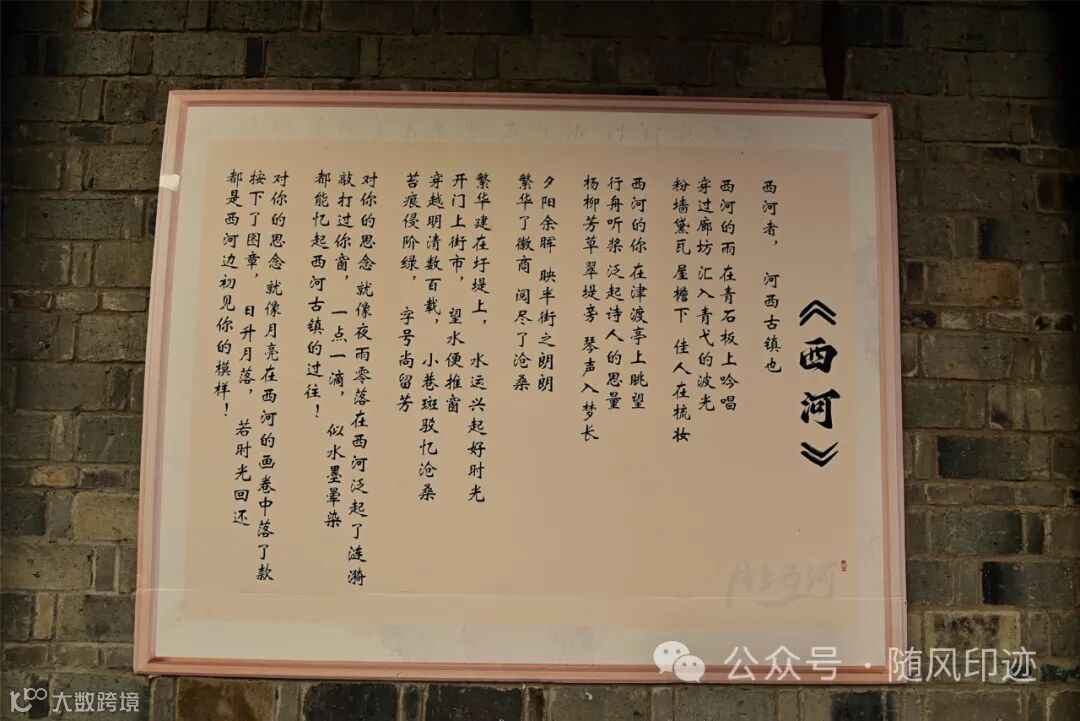 《西河》
西河者， 河西古镇也
西河的雨 在青石板上吟唱
穿过廊坊 汇入青弋的波光
粉墙黛瓦 屋檐下 佳人在梳妆
西河的你 在津渡亭上眺望
行舟听桨 泛起诗人的思量
杨柳芳草翠堤旁 琴声入梦长
夕阳余晖 映半街之朗朗
繁华了徽商 阅尽了沧桑
繁华建在圩堤上， 水运兴起好时光
开门上街市， 望水便推窗
穿越明清数百载， 小巷斑驳忆沧桑
苔痕侵阶绿， 字号尚留芳
对你的思念 就像夜雨零落在西河泛起了涟漪
敲打过你窗， 一点一滴， 似水墨晕染
都能忆起西河古镇的过往！
对你的思念 就像月亮在西河的画卷中落了款
按下了图章， 日升月落， 若时光回还
都是西河边初见你的模样！
公众号·随风印迹
大数跨境